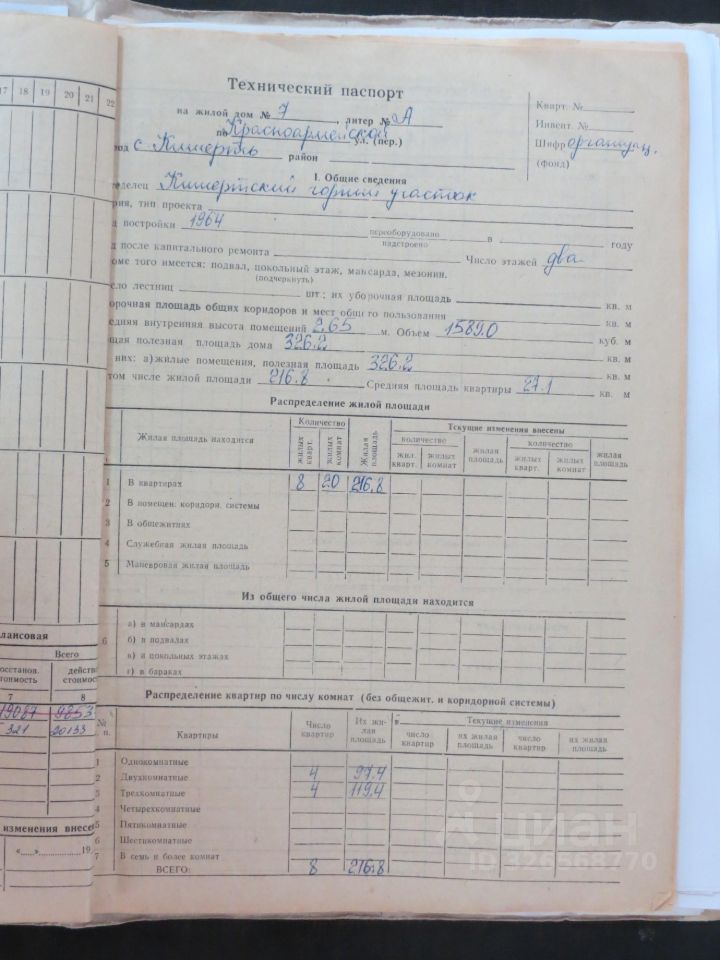 17 18 19 20 21 22
Технический паспорт
на жилой дом № 7, литер № А
Кварт. №
Инвент. №
по Красноармейской ул. (пер.)
Шифр организац.
(фонд)
род с Кишерть район
I. Общие сведения
делец Кишертский горный участок
рия, тип проекта
д постройки 1964 переоборудовано в году
надстроено
д после капитального ремонта Число этажей два
оме того имеется: подвал, цокольный этаж, мансарда, мезонин.
(подчеркнуть)
сло лестниц шт.; их уборочная площадь кв. м
орочная площадь общих коридоров и мест общего пользования кв. м
едняя внутренняя высота помещений 2,65 м. Объем 1589.0 куб. м
щая полезная площадь дома 326.2 кв. м
них: а) жилые помещения, полезная площадь 326.2 кв. м
том числе жилой площади 216.8 Средняя площадь квартиры 27.1 кв. м
Распределение жилой площади
Жилая площадь находится
Количество
жилых кварт.
жилых комнат
Жилая площадь
Текущие изменения внесены
количество
жил. кварт.
жилых комнат
жилая площадь
количество
жилых кварт.
жилых комнат
жилая площадь
1 В квартирах 8 20 216,8
2 В помещен. коридорн. системы
3 В общежитиях
4 Служебная жилая площадь
5 Маневровая жилая площадь
Из общего числа жилой площади находится
6
а) в мансардах
б) в подвалах
в) в цокольных этажах
г) в бараках
Распределение квартир по числу комнат (без общежит. и коридорной системы)
№ п.
Квартиры
Число квартир
Их жилая площадь
в
Текущие изменения
число квартир
их жилая площадь
число квартир
их жилая площадь
1 Однокомнатные
2 Двухкомнатные 4 97.4
3 Трехкомнатные 4 119.4
4 Четырехкомнатные
5 Пятикомнатные
6 Шестикомнатные
7 В семь и более комнат
ВСЕГО: 8 216.8
лансовая
Всего
осстанов. тоимость
действ стоимос
7 8
19087 9853
321 20133
изменения внесе
«.....»..............19
Циан
ID 326568770